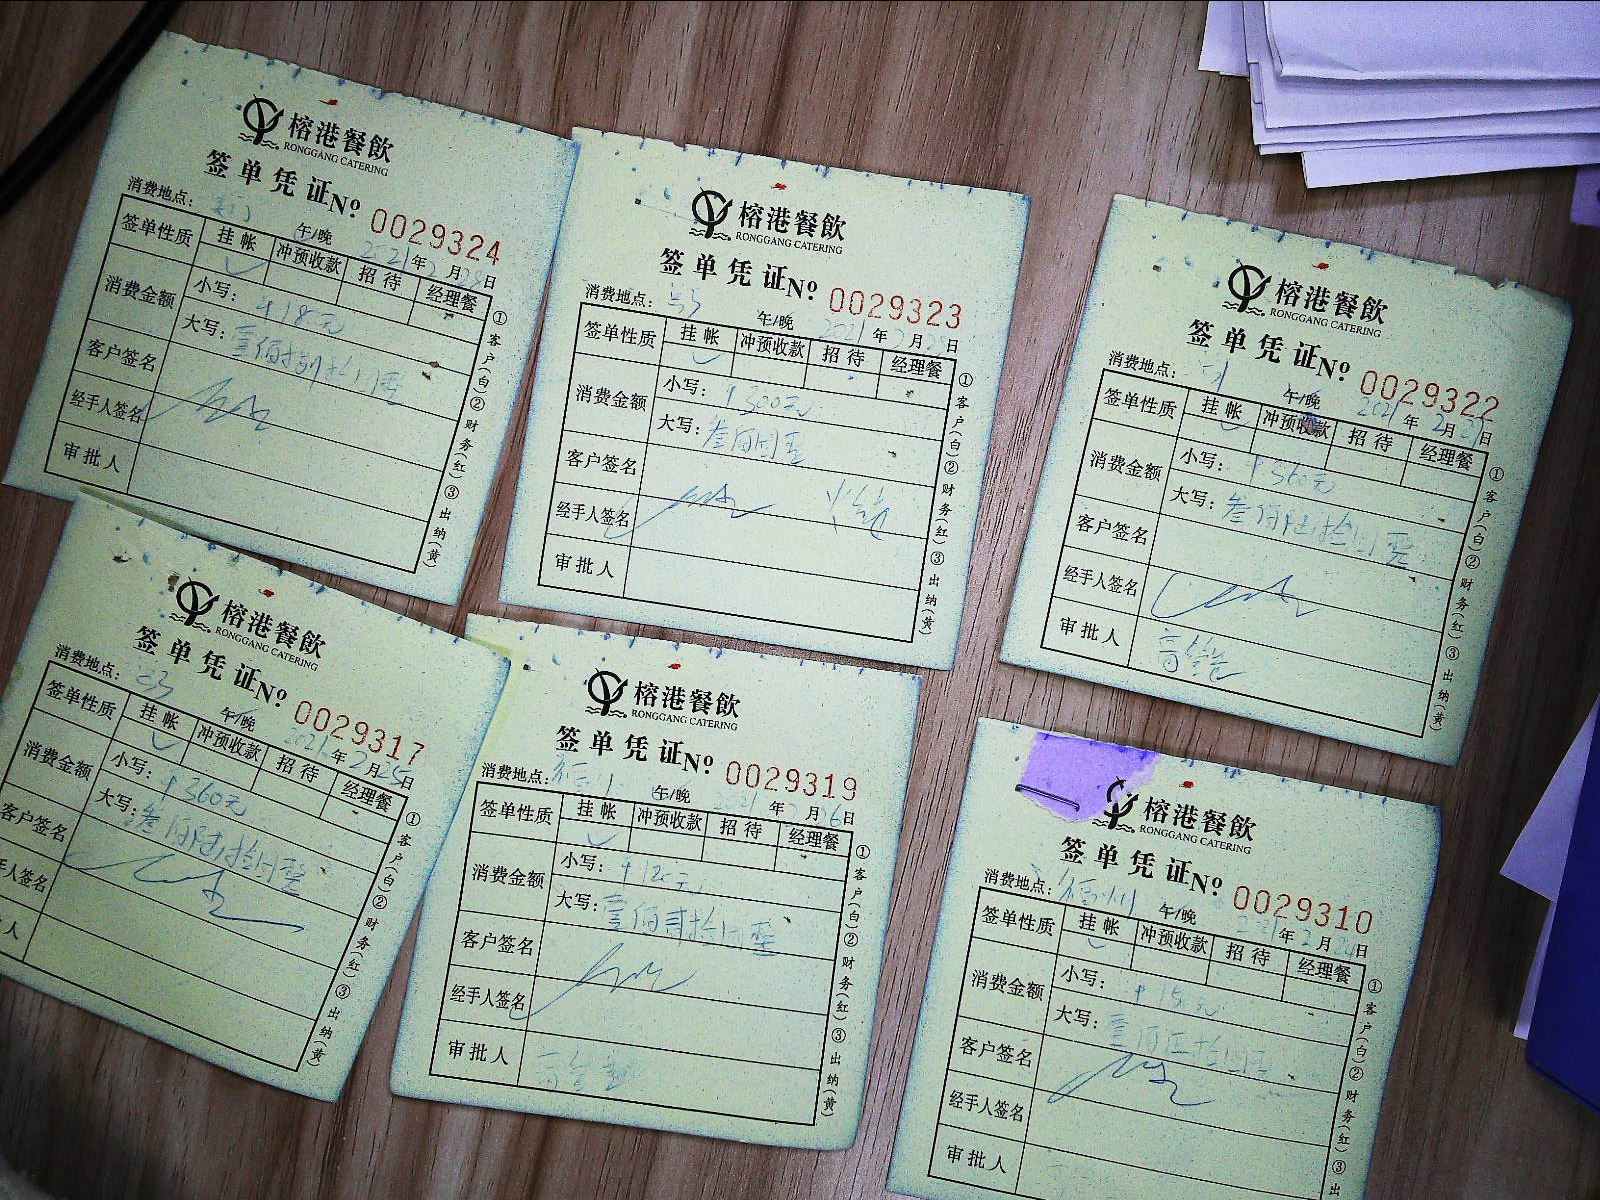 榕港餐飲
RONGGANG CATERING
签单凭证№ 0029324
消费地点:
午/晚 2021年2月28日
签单性质 挂帐 冲预收款 招待 经理餐
消费金额 小写:
大写:
客户签名
经手人签名
审批人
①客户(白)②财务(红)③出纳(黄)
榕港餐飲
RONGGANG CATERING
签单凭证№ 0029323
消费地点:
午/晚 2021年2月日
签单性质 挂帐 冲预收款 招待 经理餐
消费金额 小写: 300元
大写: 叁佰圆整
客户签名
经手人签名
审批人
①客户(白)②财务(红)③出纳(黄)
榕港餐飲
RONGGANG CATERING
签单凭证№ 0029322
消费地点:
午/晚 2021年2月日
签单性质 挂帐 冲预收款 招待 经理餐
消费金额 小写: 360元
大写: 叁佰陆拾圆整
客户签名
经手人签名
审批人
①客户(白)②财务(红)③出纳(黄)
榕港餐飲
RONGGANG CATERING
签单凭证№ 0029317
消费地点:
午/晚 2021年2月25日
签单性质 挂帐 冲预收款 招待 经理餐
消费金额 小写: 360元
大写: 叁佰陆拾圆整
客户签名
手人签名
人
①客户(白)②财务(红)③出纳(黄)
榕港餐飲
RONGGANG CATERING
签单凭证№ 0029319
消费地点:
午/晚 2021年2月26日
签单性质 挂帐 冲预收款 招待 经理餐
消费金额 小写: 120元
大写: 壹佰贰拾圆整
客户签名
经手人签名
审批人
①客户(白)②财务(红)③出纳(黄)
榕港餐飲
RONGGANG CATERING
签单凭证№ 0029310
消费地点: 福州
午/晚 2021年2月24日
签单性质 挂帐 冲预收款 招待 经理餐
消费金额 小写:
大写: 壹佰伍拾圆整
客户签名
经手人签名
审批人
①客户(白)②财务(红)③出